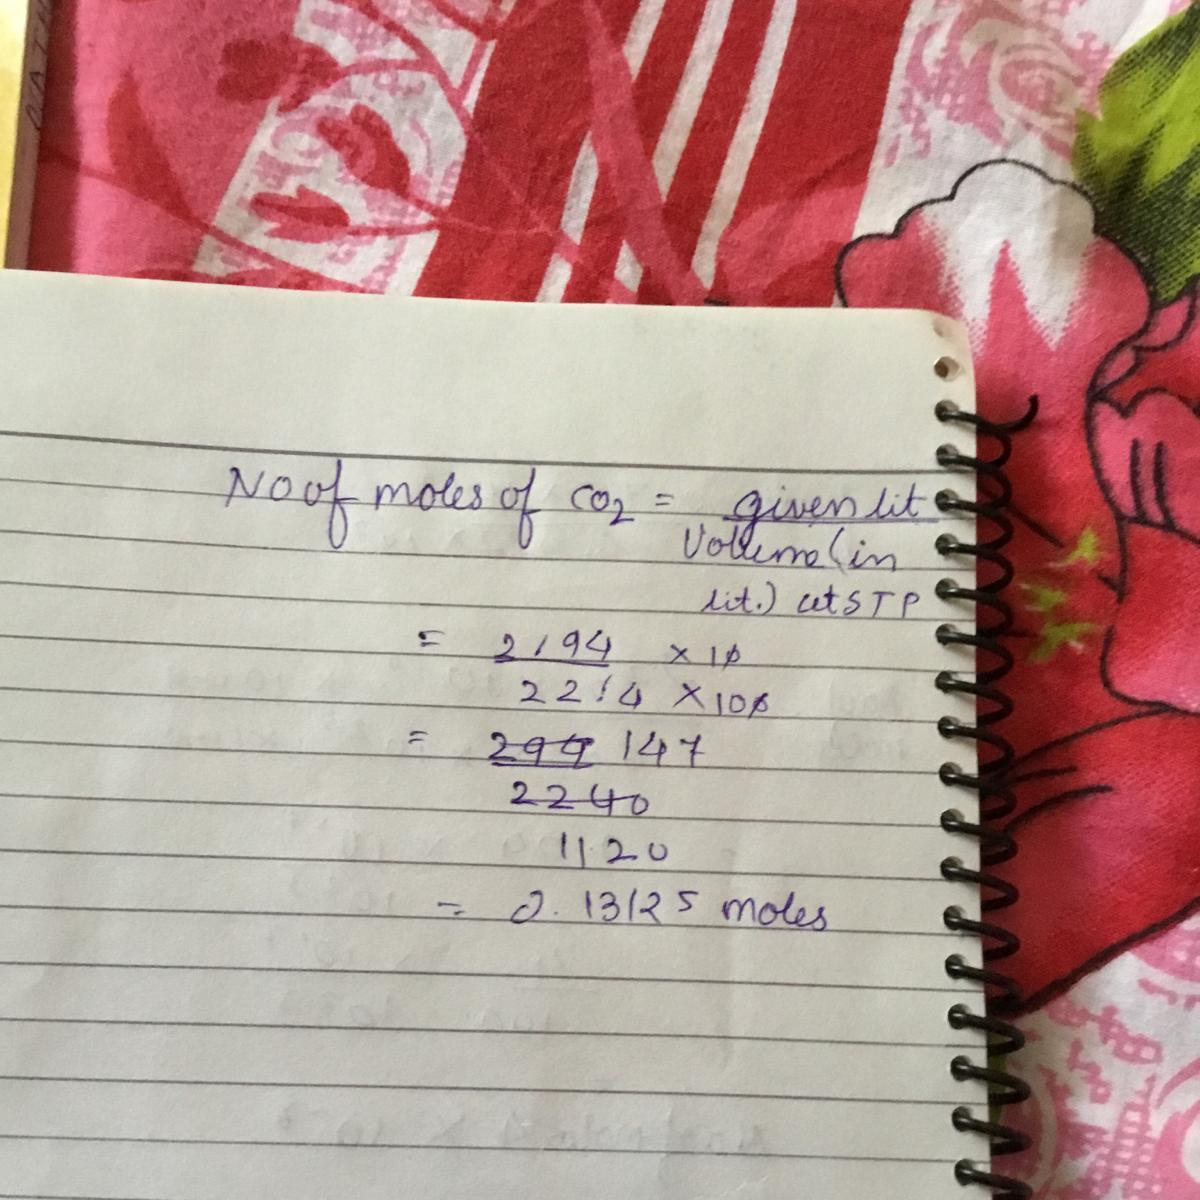 No of moles of CO2 = given lit
Volume (in
lit.) at STP
= 2.94 × 10
22.4 × 100
= 294 147
2240
1120
= 0.13125 moles